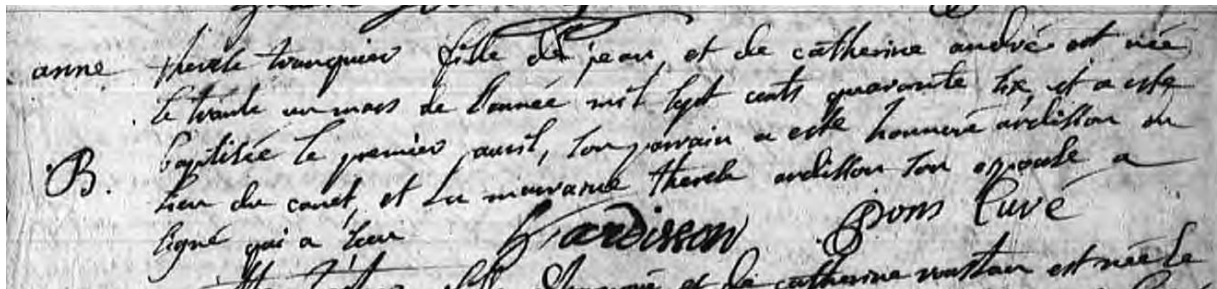 anne therese tranquier fille de jean, et de catherine andré est née
le trante un mars de l'année mil sept cents quarante six, et a esté
B. baptisée le premier auril, son parrain a esté honnoré ardisson du
lieu du canet, et sa marraine therese ardisson son espouse a
signé qui a sceu
h ardisson Pons Curé
et de catherine est née le